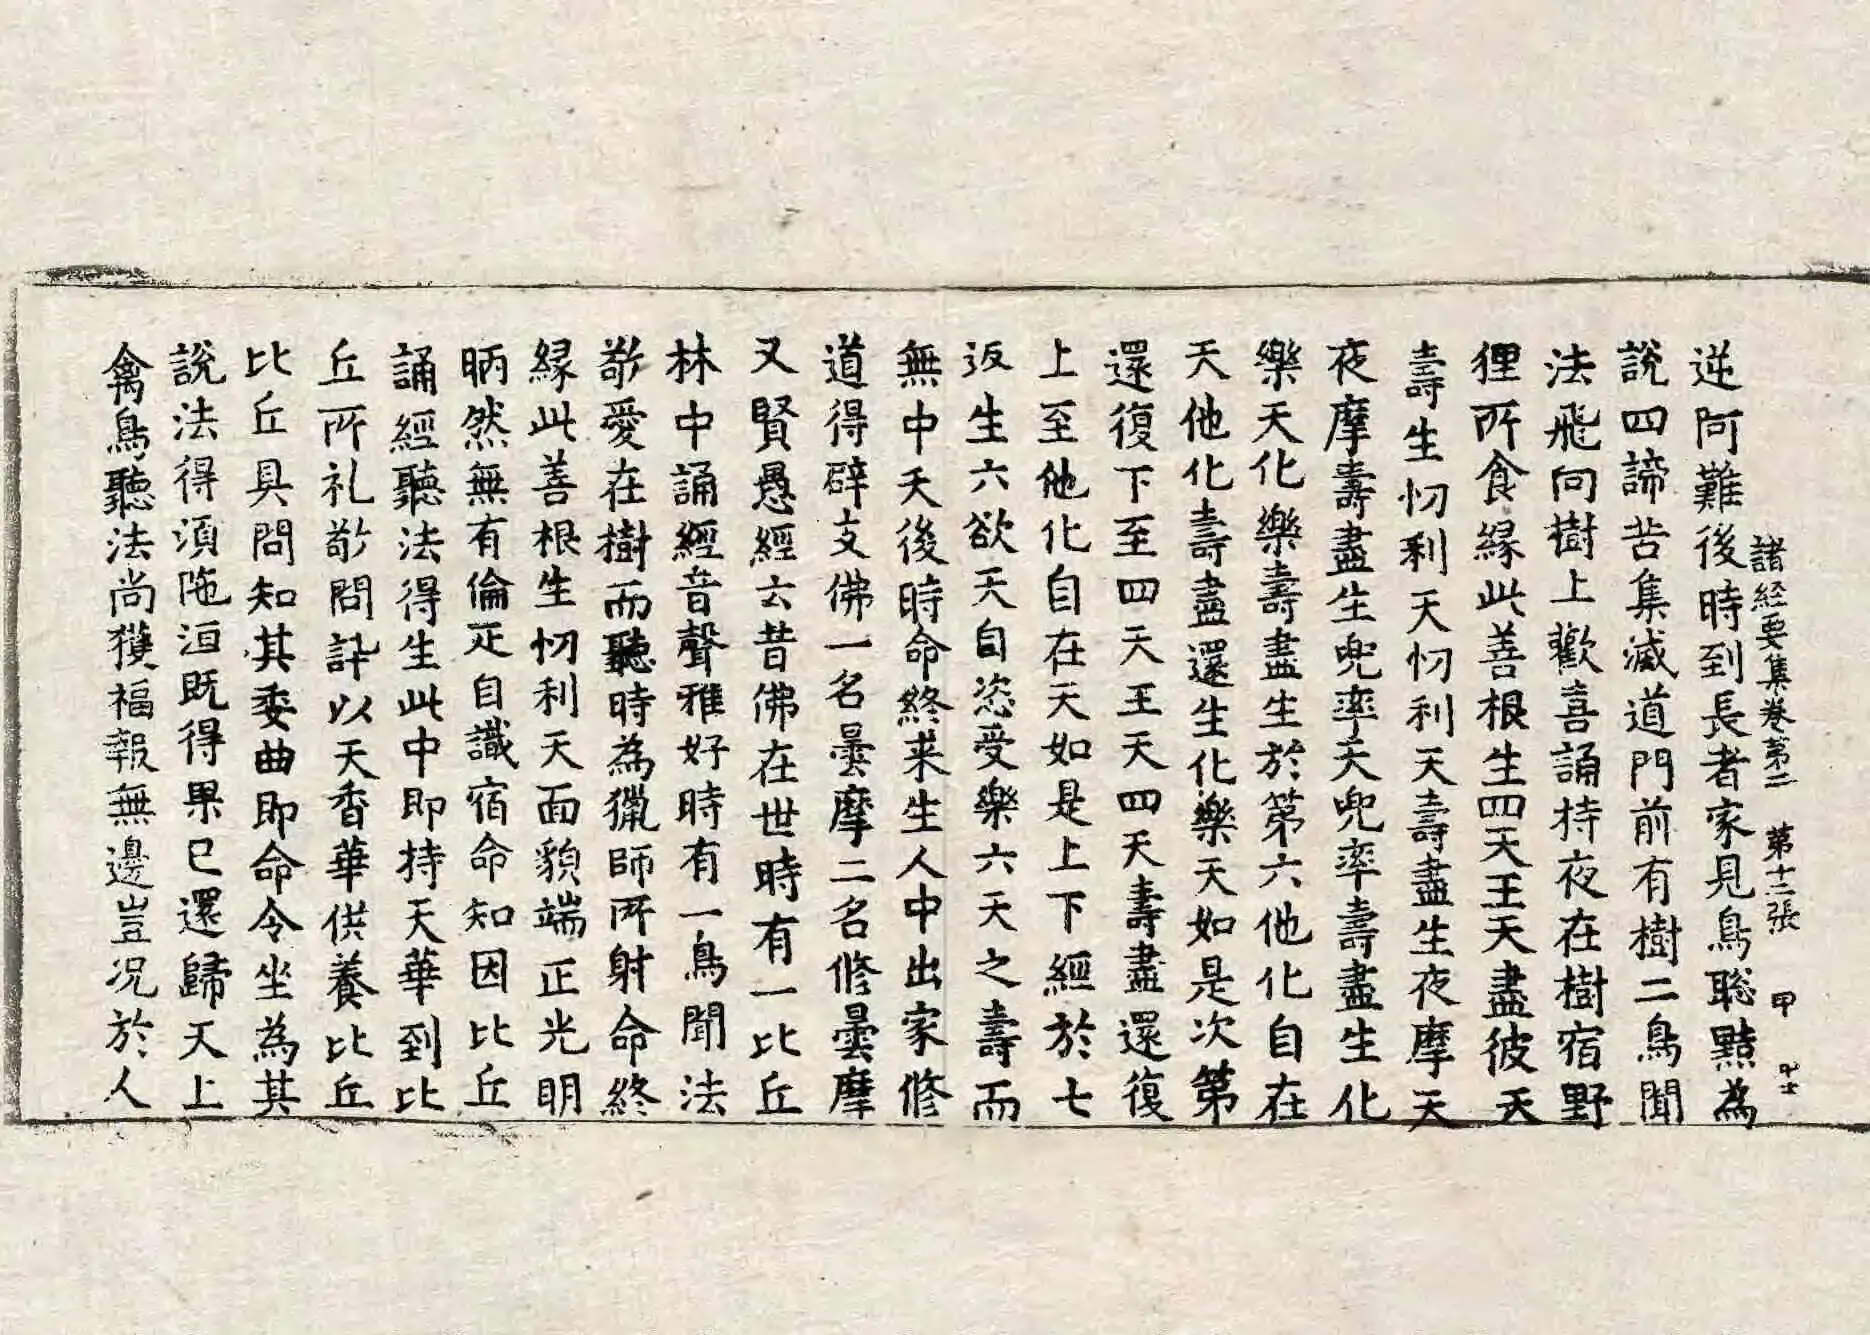 諸經要集卷第二　第十二張　甲
逆阿難後時到長者家見鳥聡黠為
說四諦苦集滅道門前有樹二鳥聞
法飛向樹上歡喜誦持夜在樹宿野
狸所食緣此善根生四天王天盡彼天
壽生忉利天忉利天壽盡生夜摩天
夜摩壽盡生兜率天兜率壽盡生化
樂天化樂壽盡生於第六他化自在
天他化壽盡還生化樂天如是次第
還復下至四天王天四天壽盡還復
上至他化自在天如是上下經於七
返生六欲天自恣受樂六天之壽而
無中夭後時命終来生人中出家修
道得辟支佛一名曇摩二名修曇摩
又賢愚經云昔佛在世時有一比丘
林中誦經音聲雅好時有一鳥聞法
敬愛在樹而聽時為獵師所射命終
緣此善根生忉利天面貌端正光明
昞然無有倫疋自識宿命知因比丘
誦經聽法得生此中即持天華到比
丘所礼敬問訊以天香華供養比丘
比丘具問知其委曲即命令坐為其
說法得須陁洹既得果已還歸天上
禽鳥聽法尚獲福報無邊豈况於人